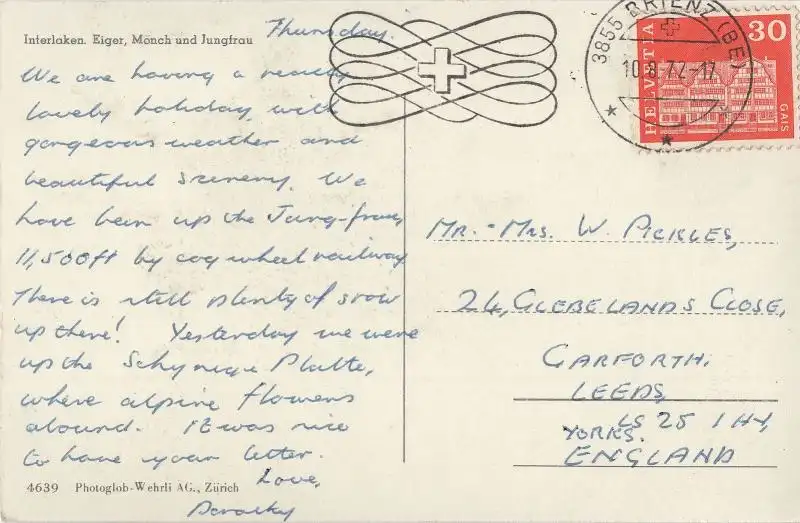 Interlaken. Eiger, Mönch und Jungfrau
Thursday.
We are having a really
lovely holiday with
gorgeous weather and
beautiful scenery. We
have been up the Jung-frau,
11,500ft by cog wheel railway
There is still plenty of snow
up there! Yesterday we were
up the Schynige Platte,
where alpine flowers
abound. It was nice
to have your letter.
Love,
Dorothy
4639 Photoglob-Wehrli AG., Zürich
3855 BRIENZ (BE)
10.8.72-17
HELVETIA
30
GAIS
MR. - MRS. W. PICKLES,
24, GLEBELANDS CLOSE,
GARFORTH.
LEEDS
LS 25 1HY,
YORKS.
ENGLAND